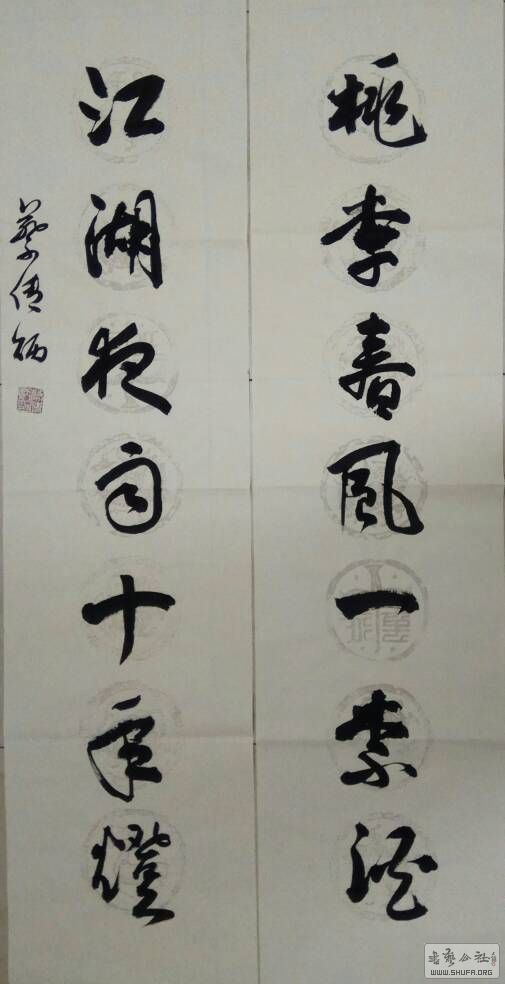 桃李春風一杯酒
江湖夜雨十年燈
蔡
書藝公社
WWW.SHUFA.ORG